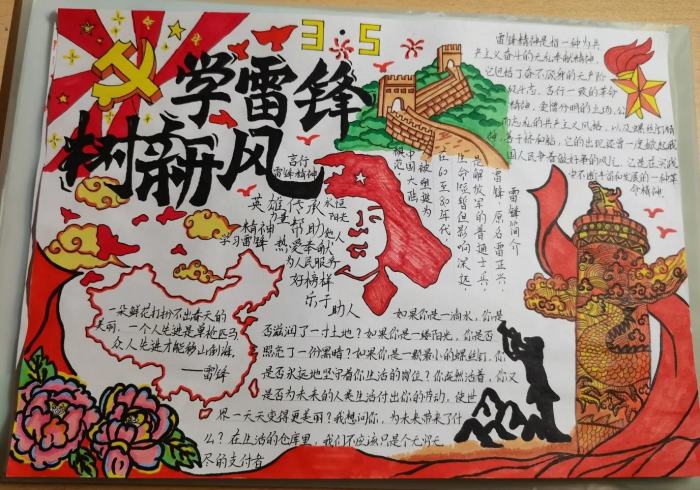 3·5
学雷锋
树新风
雷锋精神是指一种为共
产主义奋斗的无私奉献精神,
它包括了奋不顾身的无产阶
级斗志、言行一致的革命
精神、爱憎分明的立场、公
而忘私的共产主义风格,以及螺丝钉
国人民争着做好事的风化,它是在实践
中不断丰富和发展的一种革
命精神。
雷锋简介
雷锋,原名雷正兴,
是解放军的普通士兵,
生命短暂但影响深远,
在60至80年代,
被塑造为
中国大陆
模范
言行
雷锋精神
英雄 传承 永恒
力量 阳光
精神 帮助 他人
学习雷锋 热爱 奉献
为人民服务
好榜样
乐于
助人
一朵鲜花打扮不出春天的
美丽,一个人先进是单枪匹马,
众人先进才能移山倒海。
——雷锋
如果你是一滴水,你是
否滋润了一寸土地?如果你是一缕阳光,你是否
照亮了一份黑暗?如果你是一颗最小的螺丝钉,你
是否永远地坚守着你生活的岗位?你既然活着,你又
是否为未来的人类生活付出你的劳动,使世
界一天天变得更美丽?我想问你,为未来带来了什
么?在生活的仓库里,我们不应该只是个无穷无
尽的支付者